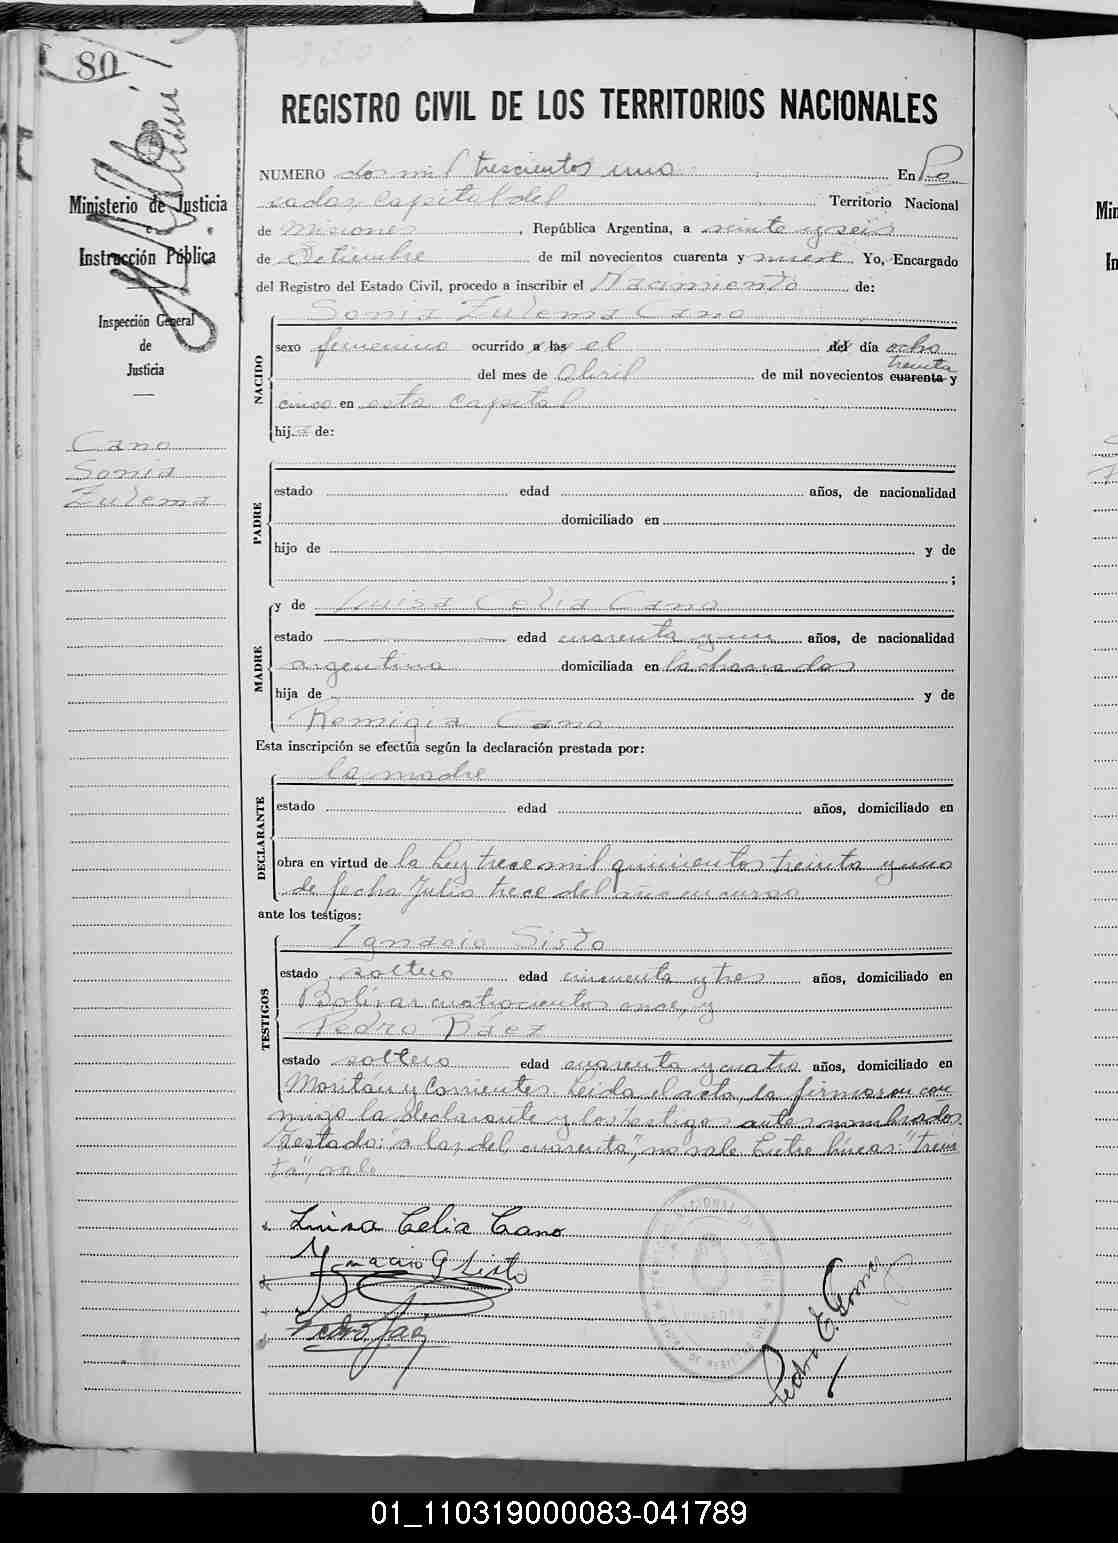 80
Ministerio de Justicia
e
Instrucción Pública
Inspección General
de
Justicia
Cano
Sonia
Zulema
REGISTRO CIVIL DE LOS TERRITORIOS NACIONALES
NUMERO dos mil trescientos uno En Po
sadas capital del Territorio Nacional
de Misiones, República Argentina, a veinte y seis
de Setiembre de mil novecientos cuarenta y nueve Yo, Encargado
del Registro del Estado Civil, procedo a inscribir el Nacimiento de:
Sonia Zulema Cano
NACIDO
sexo femenino ocurrido a las el del día ocho
treinta
del mes de Abril de mil novecientos cuarenta y
cinco en esta capital
hija de:
PADRE
estado edad años, de nacionalidad
domiciliado en
hijo de y de
;
MADRE
y de Luisa Celia Cano
estado edad cuarenta y un años, de nacionalidad
argentina domiciliada en la chacra dos
hija de y de
Remigia Cano
Esta inscripción se efectúa según la declaración prestada por:
la madre
DECLARANTE
estado edad años, domiciliado en
obra en virtud de la Ley trece mil quinientos treinta y uno
de fecha Julio trece del año en curso
ante los testigos:
TESTIGOS
Ignacio Sisto
estado soltero edad cincuenta y tres años, domiciliado en
Bolívar cuatrocientos once, y
Pedro Báez
estado soltero edad cuarenta y cuatro años, domiciliado en
y Corrientes. Leida el acta, la firmaron con
migo la declarante y los testigos antes nombrados.
Testado: "a las, del, cuarenta", no vale. Entre líneas: "trein
ta", vale
Luisa Celia Cano
Ignacio G Sisto
Pedro Báez
Pedro E. Gomez
01_110319000083-041789